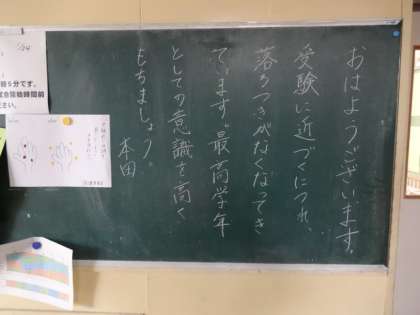 おはようございます。
受験に近づくにつれ、
落ちつきがなくなってき
ています。最高学年
としての意識を高く
もちましょう。
本田
5分です。